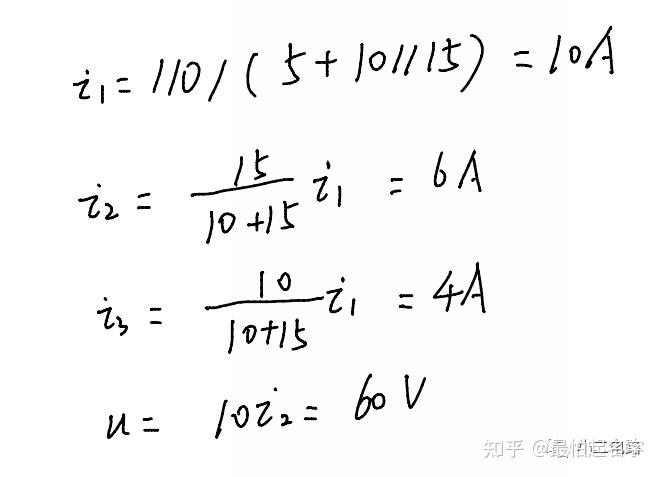 i₁ = 110 / ( 5 + 10 // 15 ) = 10A
i₂ = 15/(10+15) i₁ = 6A
i₃ = 10/(10+15) i₁ = 4A
u = 10i₂ = 60 V
知乎 @最怕